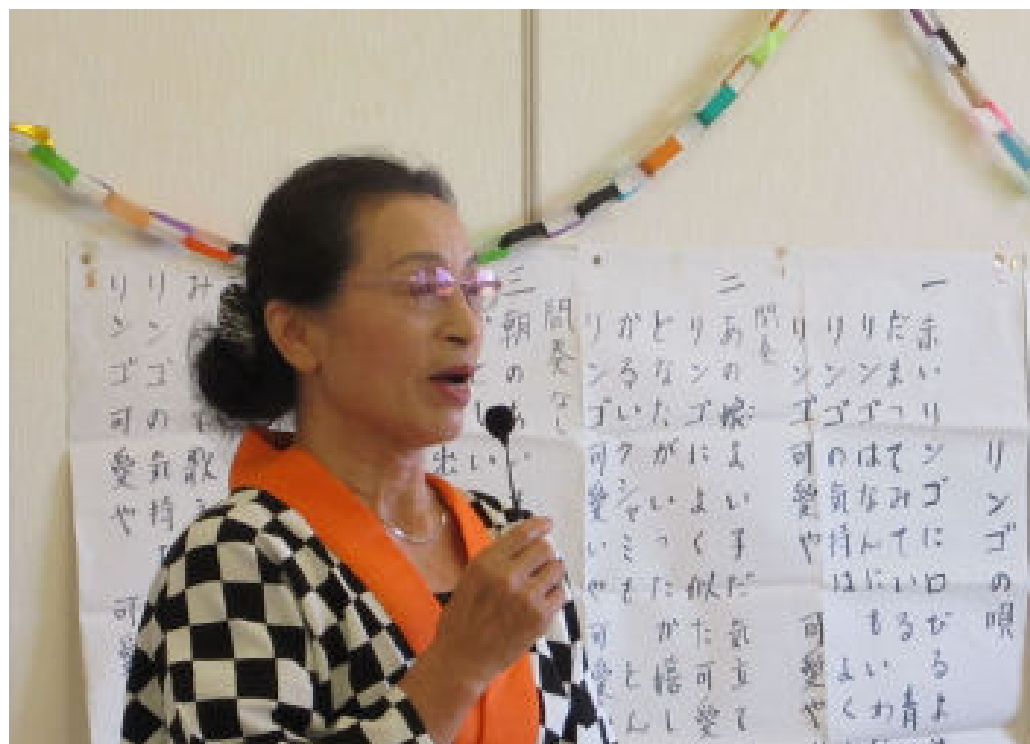 リンゴの唄
一 赤いリンゴに口びるよ
だまってみている青
リンゴはなんにもいわ
リンゴの気持はよく
リンゴ可愛や 可愛や
間奏
二 あの娘よい子だ気立て
リンゴによく似た可愛
どなたがいったか嬉し
かるいクシャミもとん
リンゴ可愛いや可愛
間奏なし
三 朝の
み 歌
リンゴの気持
リンゴ可愛や 可愛